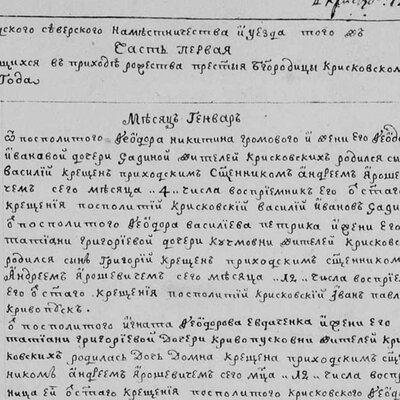 дского сѣверского намѣстничества й уезда того жъ
Часть первая
щихся въ приходѣ рождества престыя бѣгородицы Крисковском
Года
Мѣсяцъ Генварь
ѿ посполитого Ѳеѡдора никитина громового й жени его
йвановой дочери Жителей Крисковскихъ родился си
василий крещенъ приходскимъ сщенникомъ андреем Ярошеви
чемъ сего мѣсяца 4 числа восприемникъ его ѿ стаго
крещения посполитій Крисковскій василий йвановъ
ѿ посполитого Ѳеѡдора василіева петрика й жени его
татіани григоріевой дочери кучмовни жителей Крисковс
родился синъ Григорій крещенъ приходскимъ сщенником
Андреемъ Ярошевичемъ сего мѣсяца 12 числа воспріе
его ѿ стаго крещения посполитій крисковскій йванъ павл
ѿ посполитого йгната Ѳеѡдорова Евдиченка й жени его
татіани григоріевой дочери кривопусковни жителей Кри
ковскихъ родилась дочь домна крещена приходскимъ сщ
никомъ андреемъ Ярошевичемъ сего мца 12 числа воспр
ница ей ѿ стаго крещения посполитого крисковского Ѳеѡдо